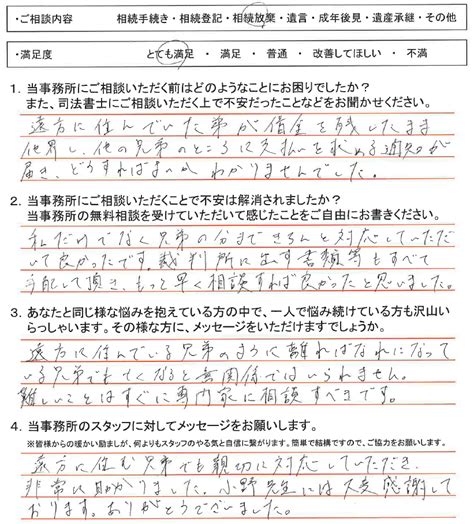 ・ご相談内容　相続手続き・相続登記・相続放棄・遺言・成年後見・遺産承継・その他
・満足度　とても満足・満足・普通・改善してほしい・不満
1. 当事務所にご相談いただく前はどのようなことにお困りでしたか？
また、司法書士にご相談いただく上で不安だったことなどをお聞かせください。
遠方に住んでいた弟が借金を残したまま
他界し、他の兄弟のところに支払いを求める通知が
届き、どうすればよいかわかりませんでした。
2. 当事務所にご相談いただくことで不安は解消されましたか？
当事務所の無料相談を受けていただいて感じたことをご自由にお書きください。
私だけでなく兄弟の分まできちんと対応していただ
いて良かったです。裁判所に出す書類等もすべて
手配して頂き、もっと早く相談すれば良かったと思いました。
3. あなたと同じ様な悩みを抱えている方の中で、一人で悩み続けている方も沢山い
らっしゃいます。その様な方に、メッセージをいただけますでしょうか。
遠方に住んでいる兄弟のように離ればなれになって
いる兄弟でも亡くなると無関係ではいられません。
難しいことはすぐに専門家に相談すべきです。
4. 当事務所のスタッフに対してメッセージをお願いします。
※皆様からの暖かい励ましが、何よりもスタッフのやる気と自信に繋がります。簡単で結構ですので、ご協力をお願いします。
遠方に住む兄弟でも親切に対応していただき、
非常に助かりました。小野先生には大変感謝して
おります。ありがとうございました。